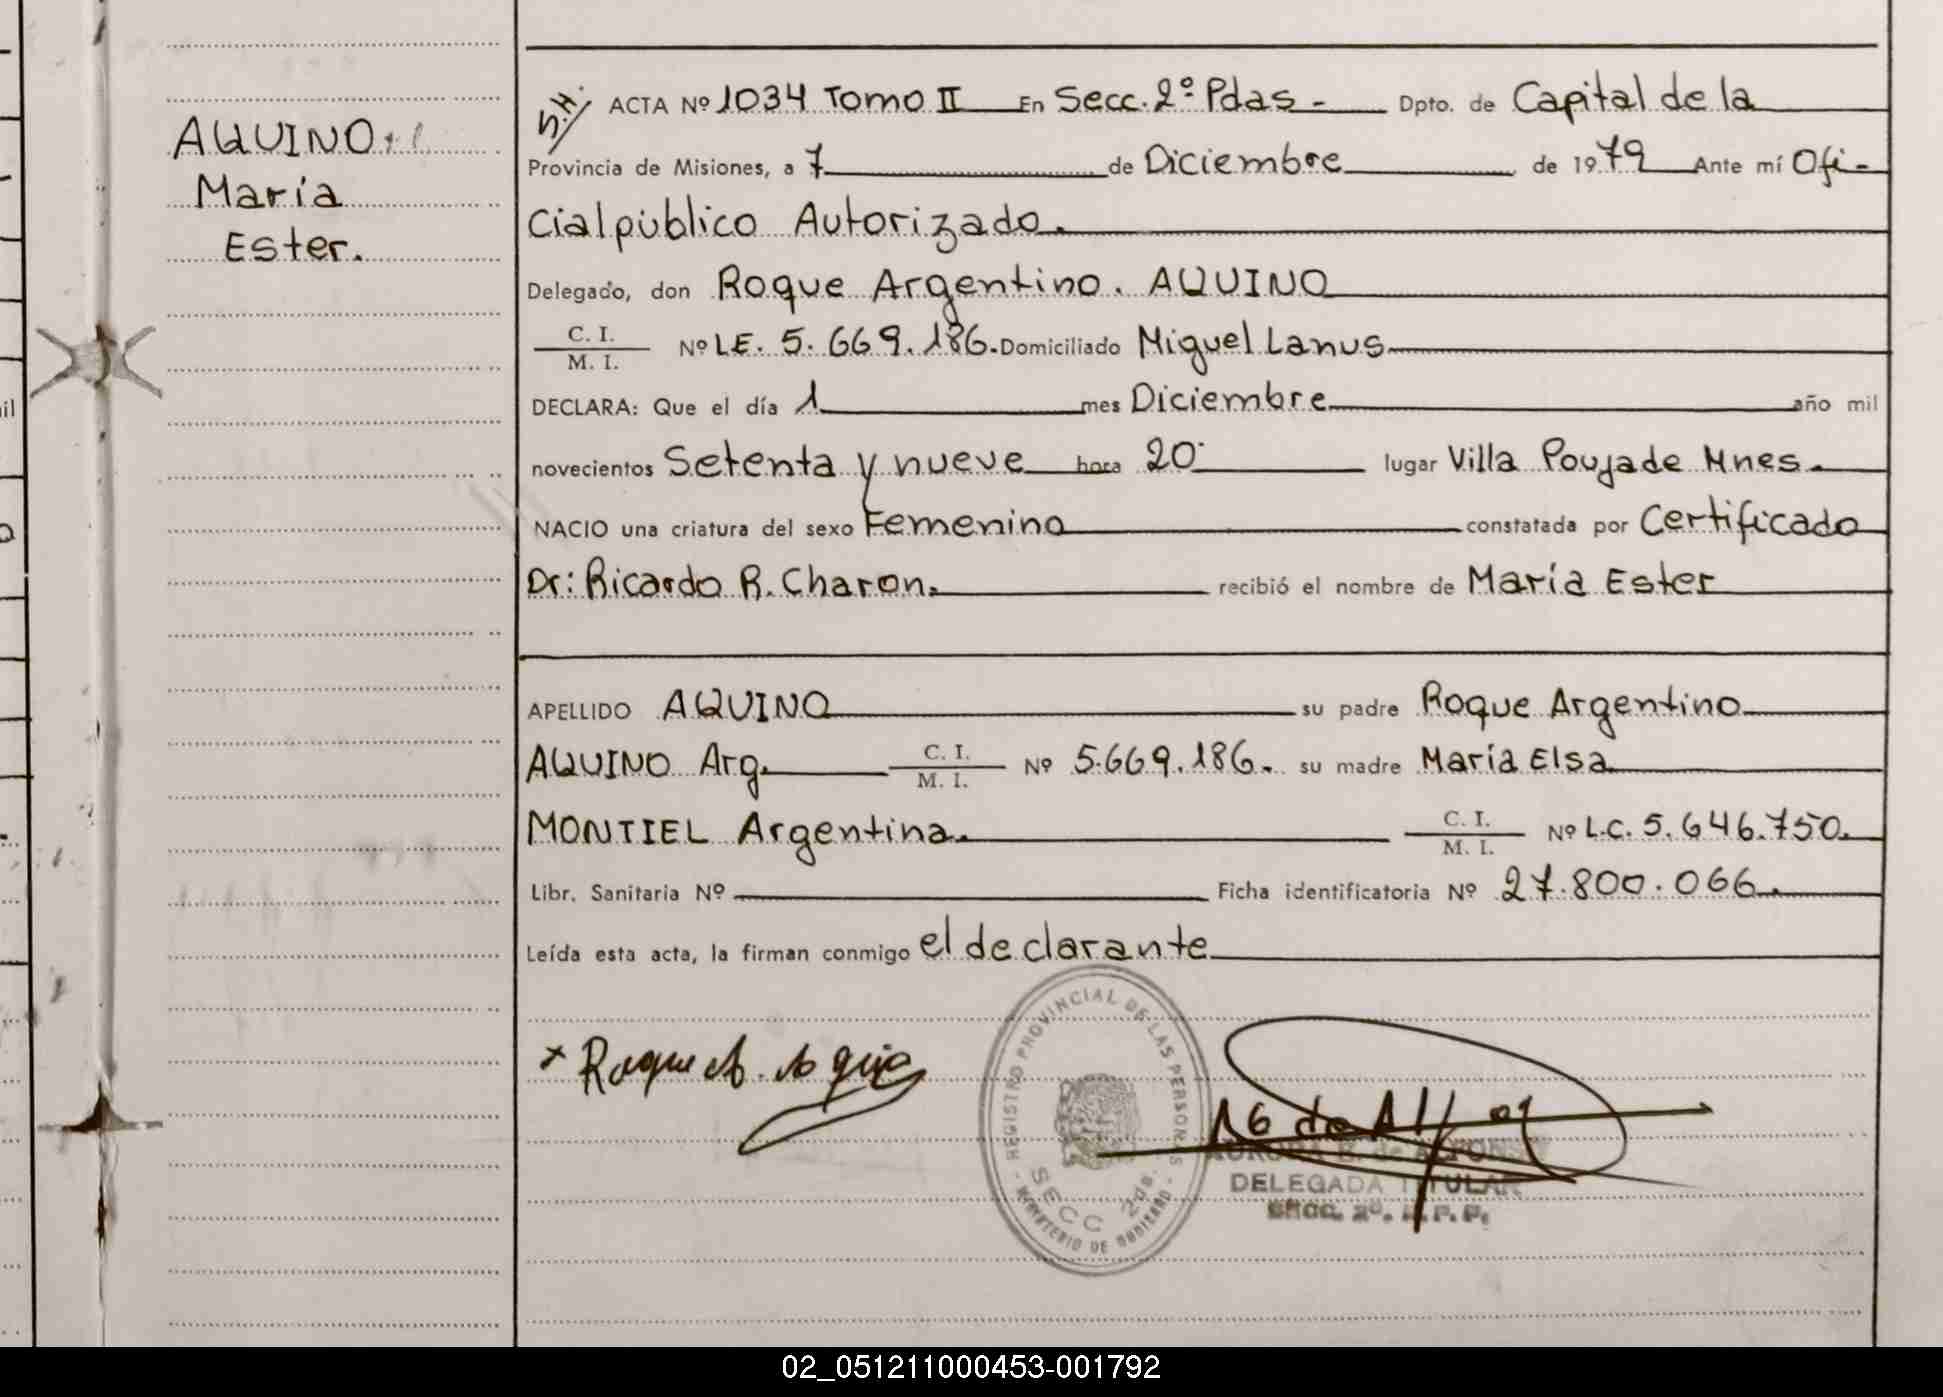 AQUINO
María
Ester.
S.H. ACTA Nº 1034 Tomo II En Secc. 2º Pdas - Dpto. de Capital de la
Provincia de Misiones, a 7 de Diciembre de 1979 Ante mí Ofi-
cial público Autorizado.
Delegado, don Roque Argentino. AQUINO
C. I.
M. I. Nº LE. 5.669.186. Domiciliado Miguel Lanus
DECLARA: Que el día 1 mes Diciembre año mil
novecientos Setenta y nueve hora 20 lugar Villa Poujade Mnes.
NACIO una criatura del sexo Femenino constatada por Certificado
Dr: Ricardo R. Charon. recibió el nombre de María Ester
APELLIDO AQUINO su padre Roque Argentino
AQUINO Arg. C. I.
M. I. Nº 5.669.186. su madre María Elsa
MONTIEL Argentina. C. I.
M. I. Nº L.C. 5.646.750.
Libr. Sanitaria Nº Ficha identificatoria Nº 27.800.066.
Leída esta acta, la firman conmigo el declarante
REGISTRO PROVINCIAL DE LAS PERSONAS
SECC 2da.
MINISTERIO DE GOBIERNO
x Roque A.
de ALFONSO
DELEGADA TITULAR
Secc. 2º. R.P.P.
02_051211000453-001792